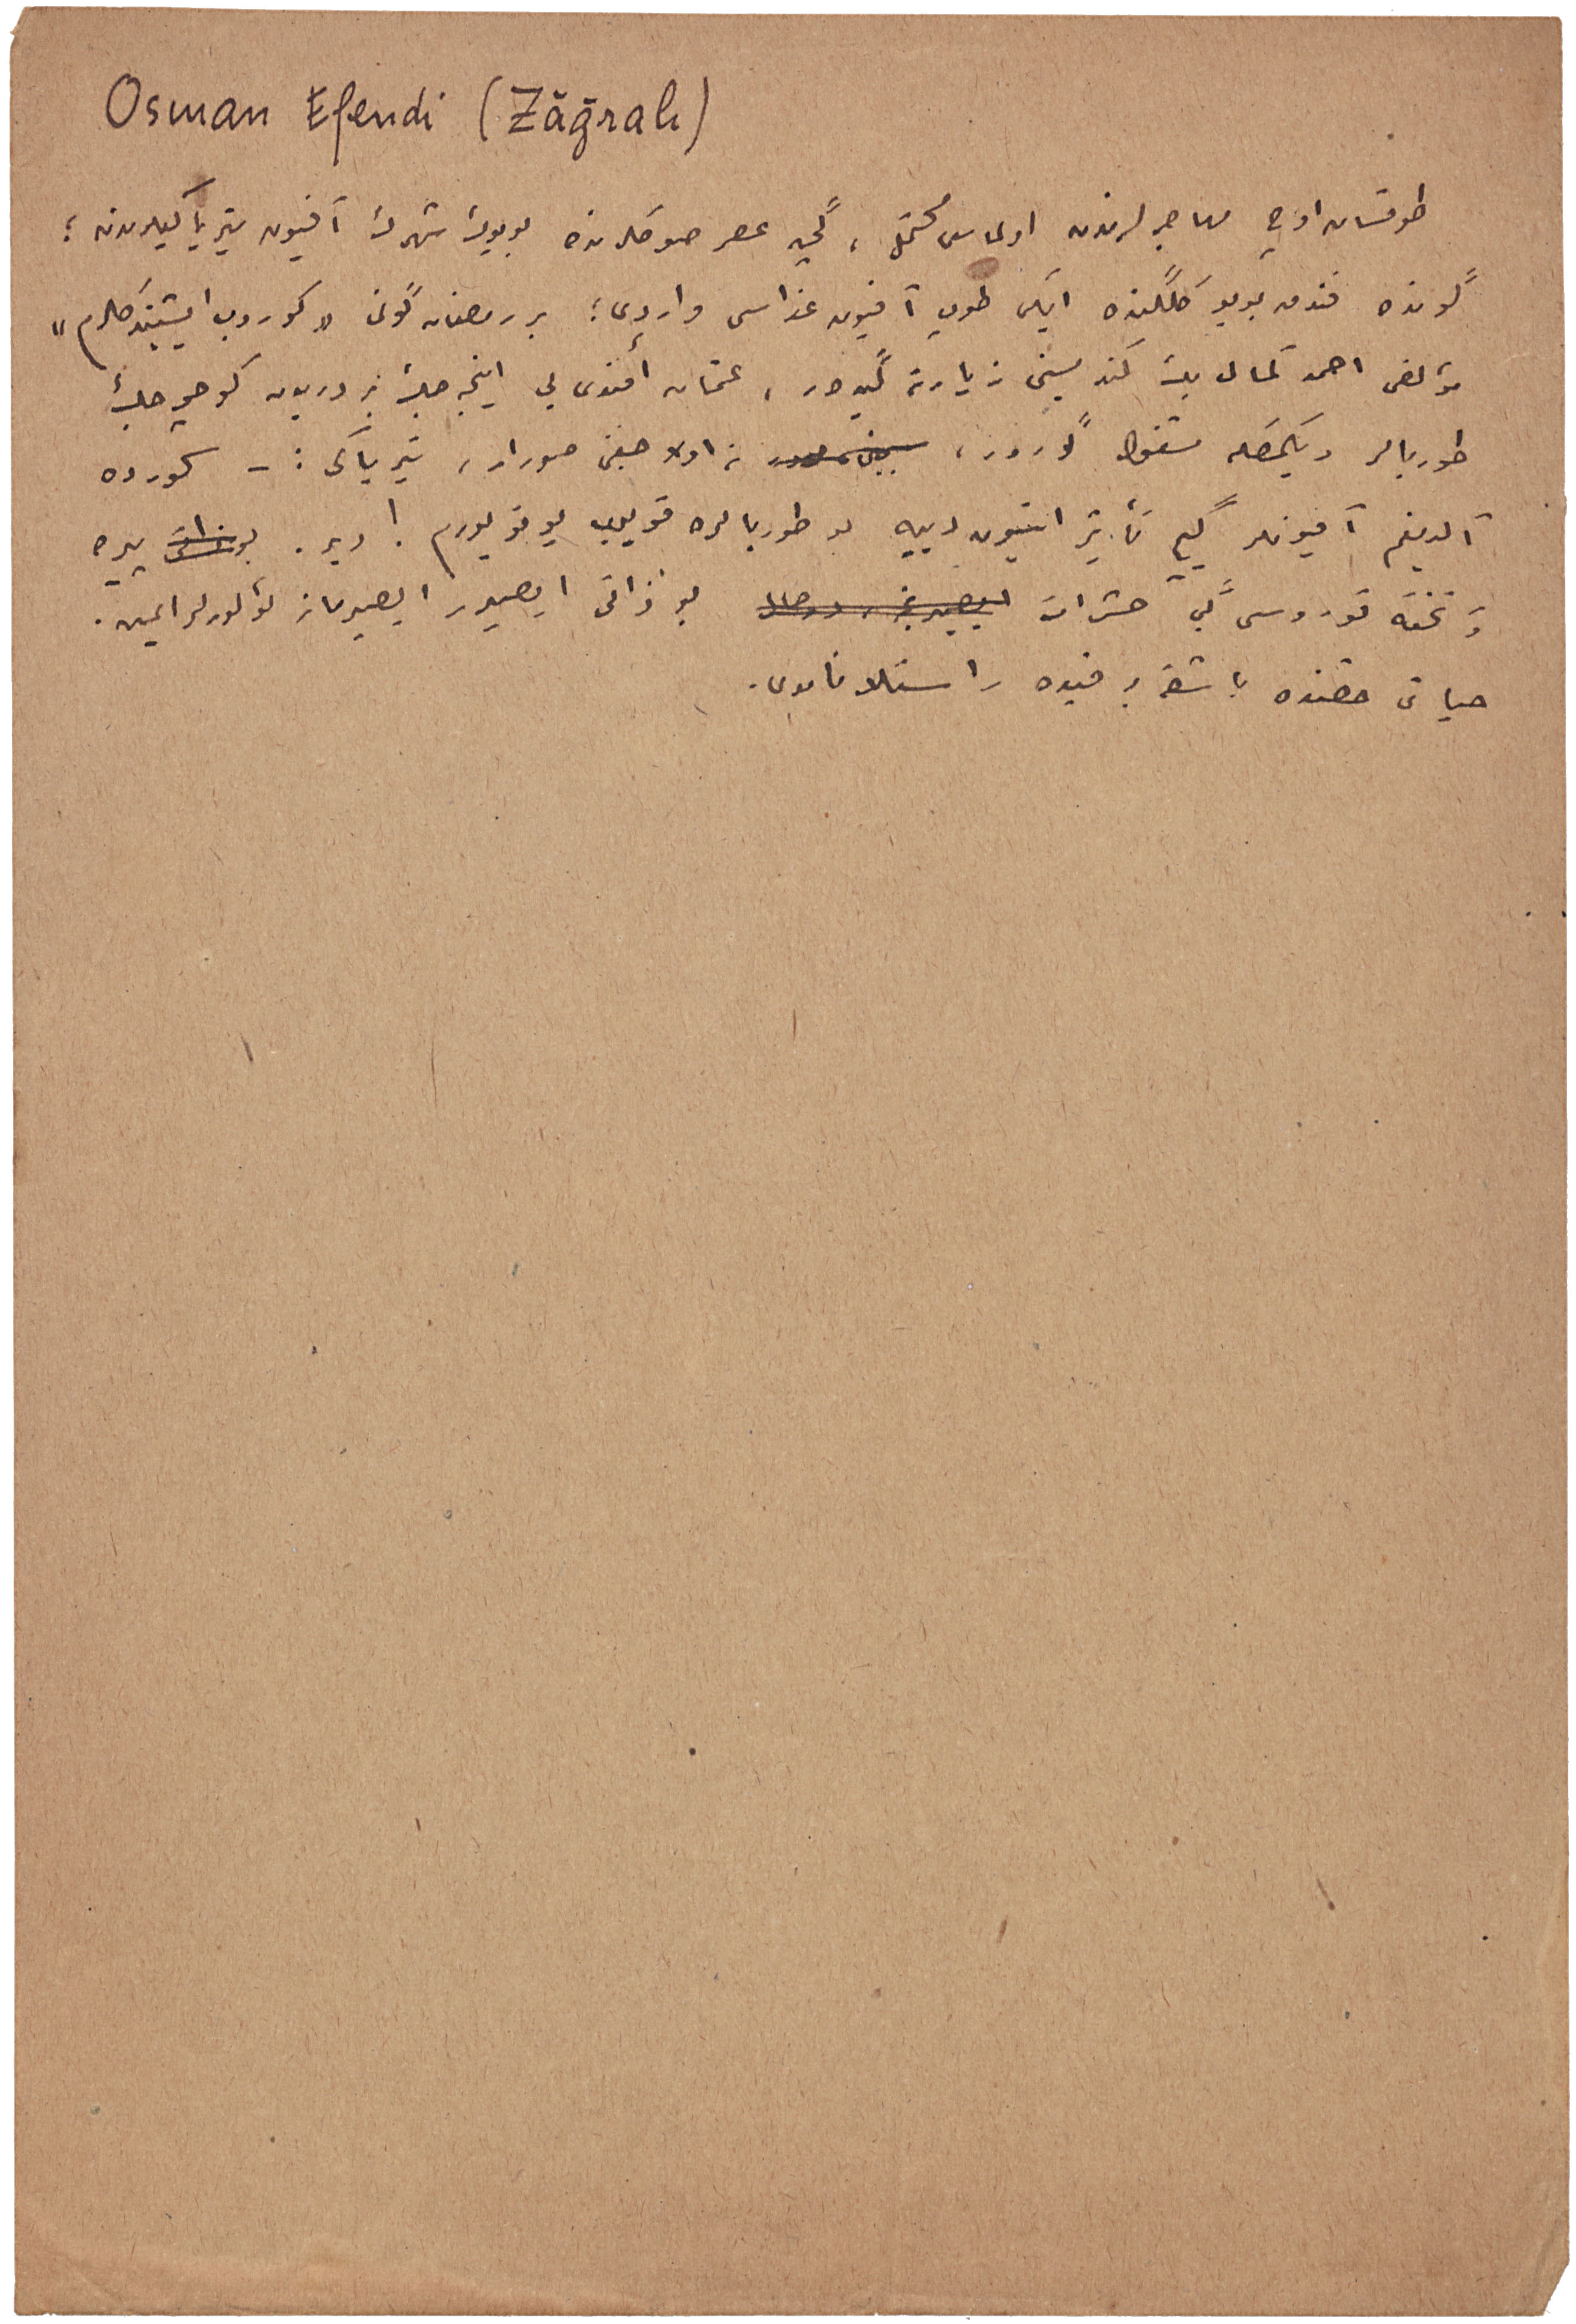 Osman Efendi (Zağralı)
طوقسان اوچ مهاجرلرندن اولماسی محتمل ، گچن عصر صوڭلرنده بویوك شهرك آفیون تیریاكیلرندن ؛
گونده فندق بویوكلگنده ایكی طوپ آفیون غداسی واردی ؛ بر رمضان گونی « كوروب ایشیتدكلرم »
مؤلفی احمد كمال بك كندیسنی زیارته گیدر ، عثمان أفندی یی اینجه جك بزدن كوچوجك
طوربالر دیكمكله مشغول گورور ، نه اولاجغنی صورار ، تیریاكی : – كورده
آلدیغم آفیونلر گیج تأثیر ایتسون دییه بو طوربالره قویوب یوتویورم ! دیر . بو پیره
و تخته قوروسی گبی حشرات بو ذاتی ایصیرر ایصیرماز ئولورلر ایمیش .
حیاتی حقنده باشقه بر قیده راستلانامدی .